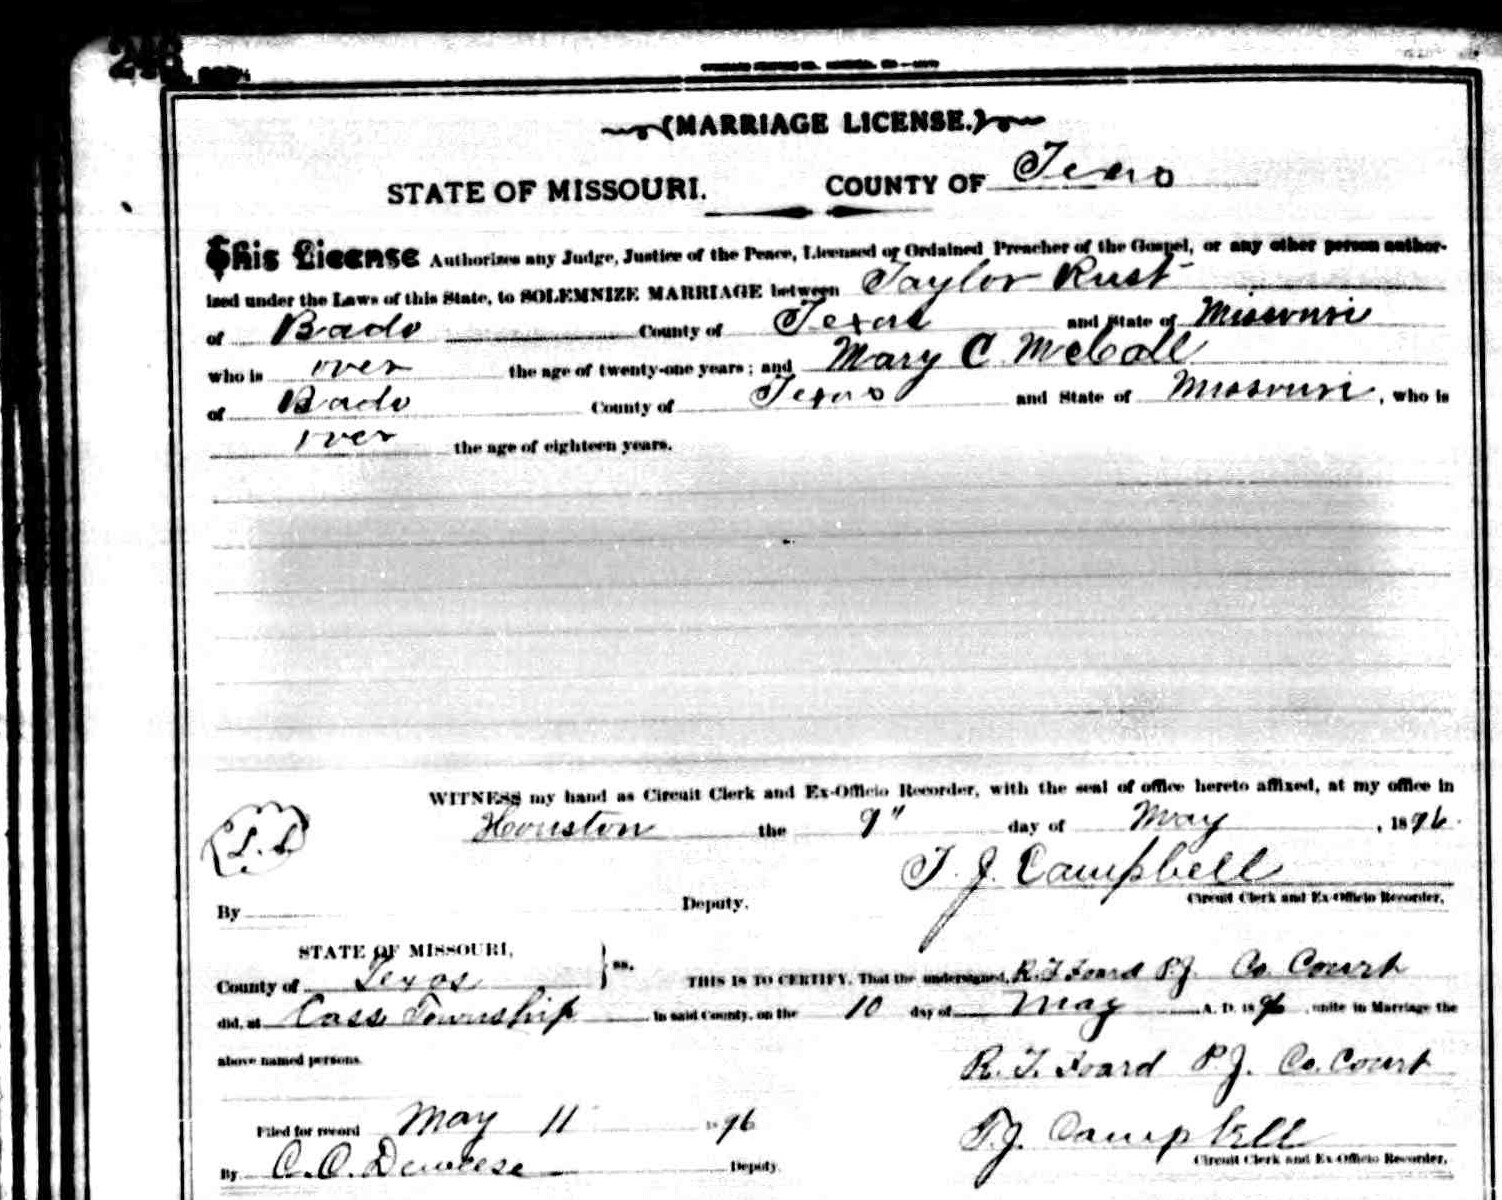 248
(MARRIAGE LICENSE.)
STATE OF MISSOURI. COUNTY OF Texas
This License Authorizes any Judge, Justice of the Peace, Licensed or Ordained Preacher of the Gospel, or any other person author-
ized under the Laws of this State, to SOLEMNIZE MARRIAGE between Taylor Rust
of Bado County of Texas and State of Missouri
who is over the age of twenty-one years; and Mary C McCall
of Bado County of Texas and State of Missouri, who is
over the age of eighteen years.
WITNESS my hand as Circuit Clerk and Ex-Officio Recorder, with the seal of office hereto affixed, at my office in
Houston the 9" day of May, 1896.
L.S.
T. J. Campbell
By Deputy. Circuit Clerk and Ex-Officio Recorder,
STATE OF MISSOURI, } ss.
County of Texas THIS IS TO CERTIFY, That the undersigned, R.T. Foard P.J. Co. Court
did, at Cass Township in said County, on the 10 day of May A. D. 1896, unite in Marriage the
above named persons. R. T. Foard P.J. Co. Court
Filed for record May 11 1896 T.J. Campbell
By C. C. Deweese Deputy. Circuit Clerk and Ex-Officio Recorder,